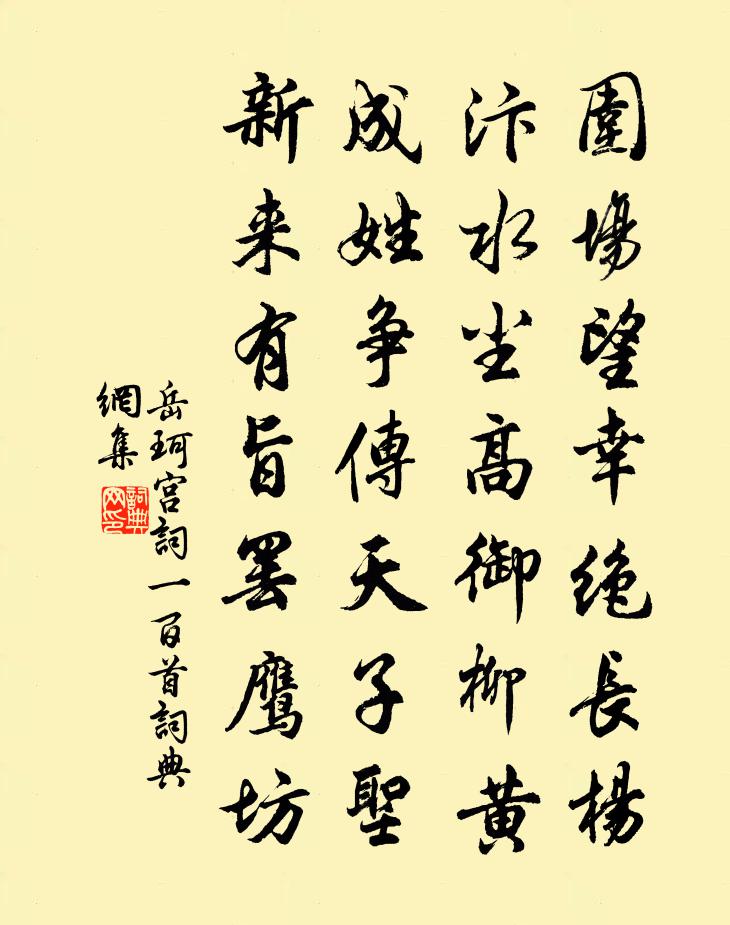 圍場望幸絶長楊
汴水尘高御柳黄
成姓争傳天子聖
新来有旨罷鷹坊
岳珂宫詞一百首詞典
網集
詞典
网印